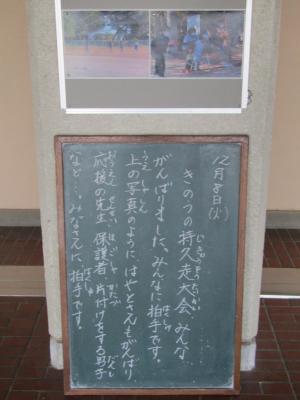 12月8日(火)
きのうの持久走大会、みんな、
がんばりました。みんなに拍手です。
上の写真のように、はやとさんもがんばり
応援の先生、保護者、片付けをする男子
など…。みなさんに、拍手です。